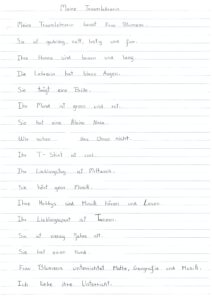 Meine Traumlehrerin
Meine Traumlehrerin heisst Frau Blumann.
Sie ist geduldig, nett, lustig und fair.
Ihre Haare sind braun und lang.
Die Lehrerin hat blaue Augen.
Sie trägt eine Brille.
Ihr Mund ist gross und rot.
Sie hat eine kleine Nase.
Wir das Ohren nicht.
Ihr T-Shirt ist
Ihr Lieblingstag ist Mittwoch.
Sie hört gern Musik.
Ihre Hobbys sind Musik hören und Lesen.
Ihr Lieblingssport ist Tennis.
Sie ist Jahre alt.
Sie hat einen Hund.
Frau Blumann unterrichtet Mathe, Geografie und Musik.
Ich liebe ihre Unterricht.